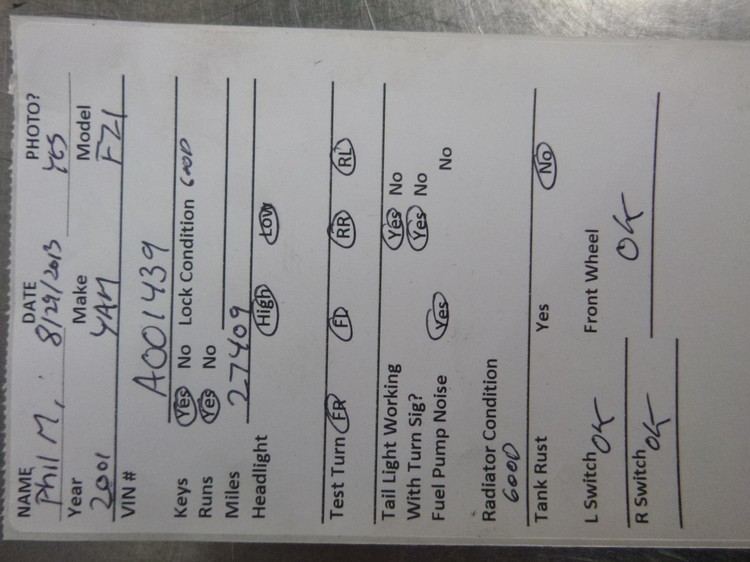 NAME DATE PHOTO?
Phil M. 8/29/2013 YES
Year Make Model
2001 YAM FZ1
VIN # A001439
Keys Yes No Lock Condition GOOD
Runs Yes No
Miles 27409
Headlight High Low
Test Turn FR FL RR RL
Tail Light Working Yes No
With Turn Sig? Yes No
Fuel Pump Noise Yes No
Radiator Condition
GOOD
Tank Rust Yes No
L Switch OK Front Wheel
R Switch OK OK